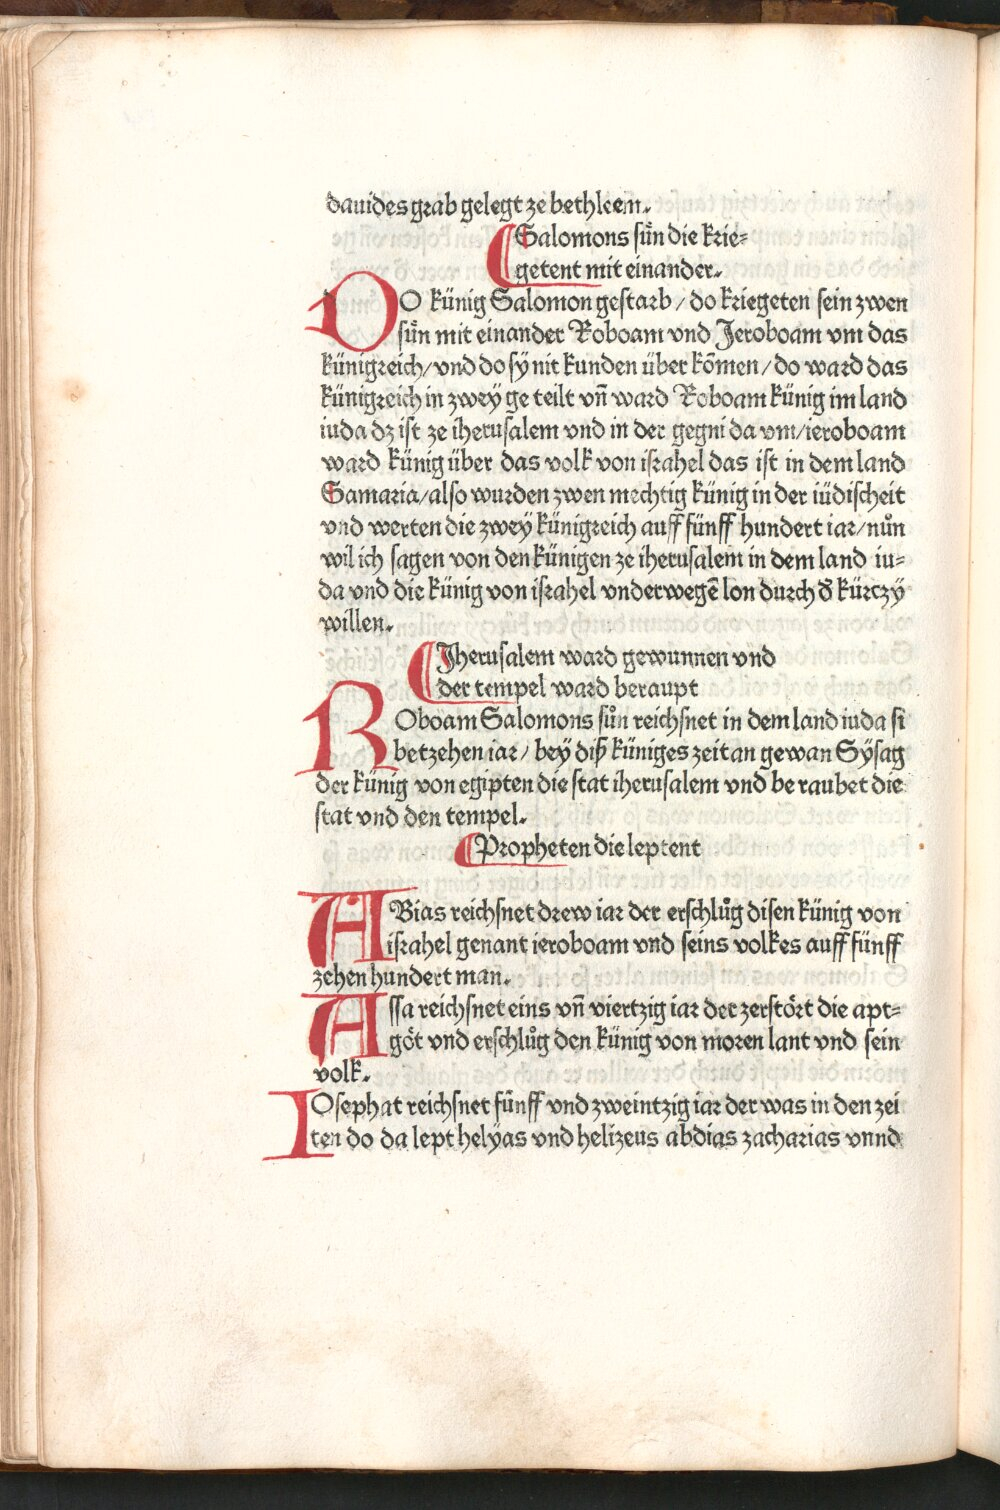 dauides grab gelegt ze bethleem.
Salomons sün die krie⸗
getent mit einander.
DO künig Salomon gestarb / do kriegeten sein zwen
sün mit einander Roboam vnd Jeroboam vm das
künigreich / vnd do sÿ nit kunden über kōmen / do ward das
künigreich in zweÿ ge teilt vn̄ ward Roboam künig im land
iuda dz ist ze iherusalem vnd in der gegni da vm / ieroboam
ward künig über das volk von israhel das ist in dem land
Samaria / also wurden zwen mechtig künig in der iüdischeit
vnd werten die zweÿ künigreich auff fünff hundert iar / nůn
wil ich sagen von den künigen ze iherusalem in dem land iu⸗
da vnd die künig von israhel vnderwegē lon durch d̄ kürczÿ
willen.
Jherusalem ward gewunnen vnd
der tempel ward beraupt
ROboam Salomons sůn reichsnet in dem land iuda si
betzehen iar / beÿ diß küniges zeit an gewan Sÿsag
der künig von egipten die stat iherusalem vnd be raubet die
stat vnd den tempel.
Propheten die leptent
ABias reichsnet drew iar der erschlůg disen künig von
israhel genant ieroboam vnd seins volkes auff fünff
zehen hundert man.
Assa reichsnet eins vn̄ viertzig iar der zerstört die apt⸗
göt vnd erschlůg den künig von moren lant vnd sein
volk.
IOsephat reichsnet fünff vnd zweintzig iar der was in den zei
ten do da lept helÿas vnd helizeus abdias zacharias vnnd